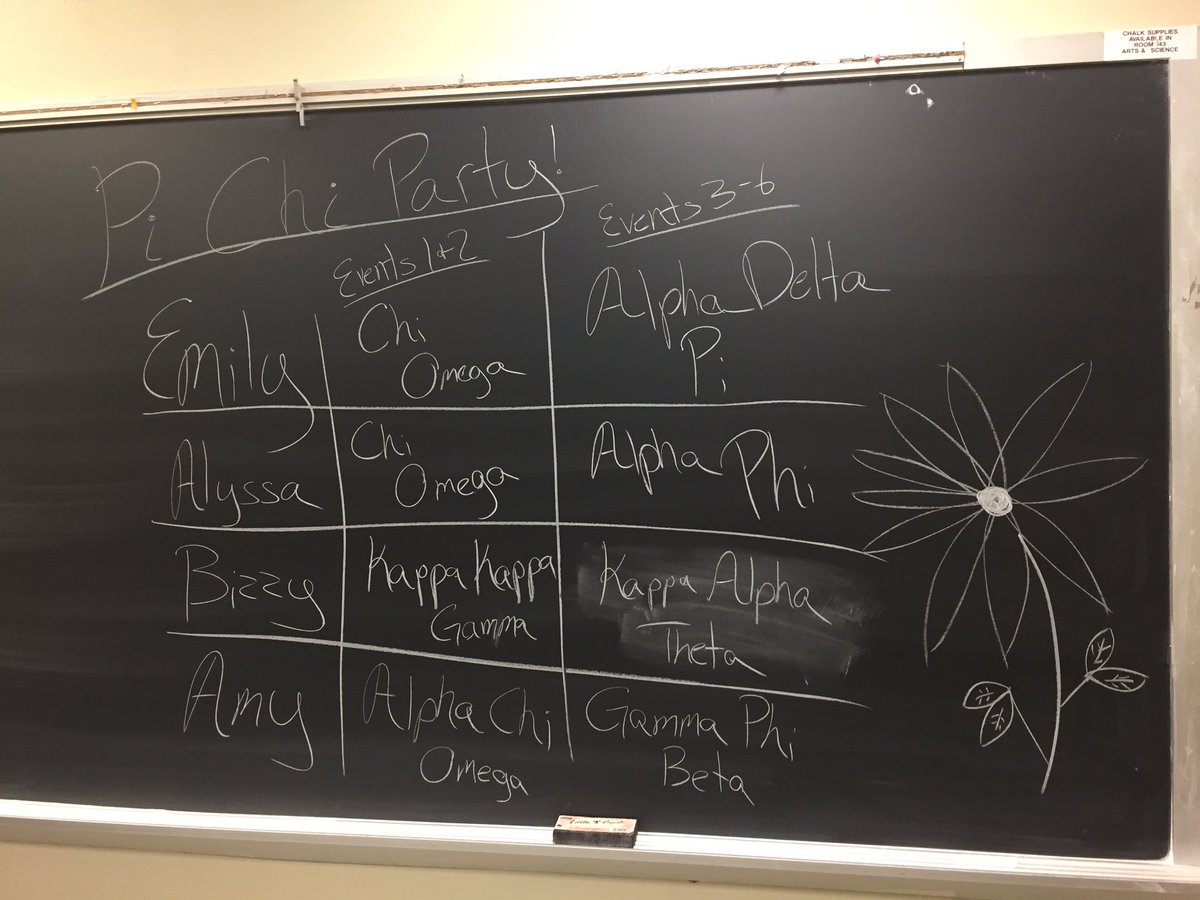 CHALK SUPPLIES
AVAILABLE IN
ROOM 143
ARTS & SCIENCE
Pi Chi Party!
Events 1+2
Events 3-6
Emily
Chi
Omega
Alpha Delta
Pi
Alyssa
Chi
Omega
Alpha Phi
Bizzy
Kappa Kappa
Gamma
Kappa Alpha
Theta
Amy
Alpha Chi
Omega
Gamma Phi
Beta